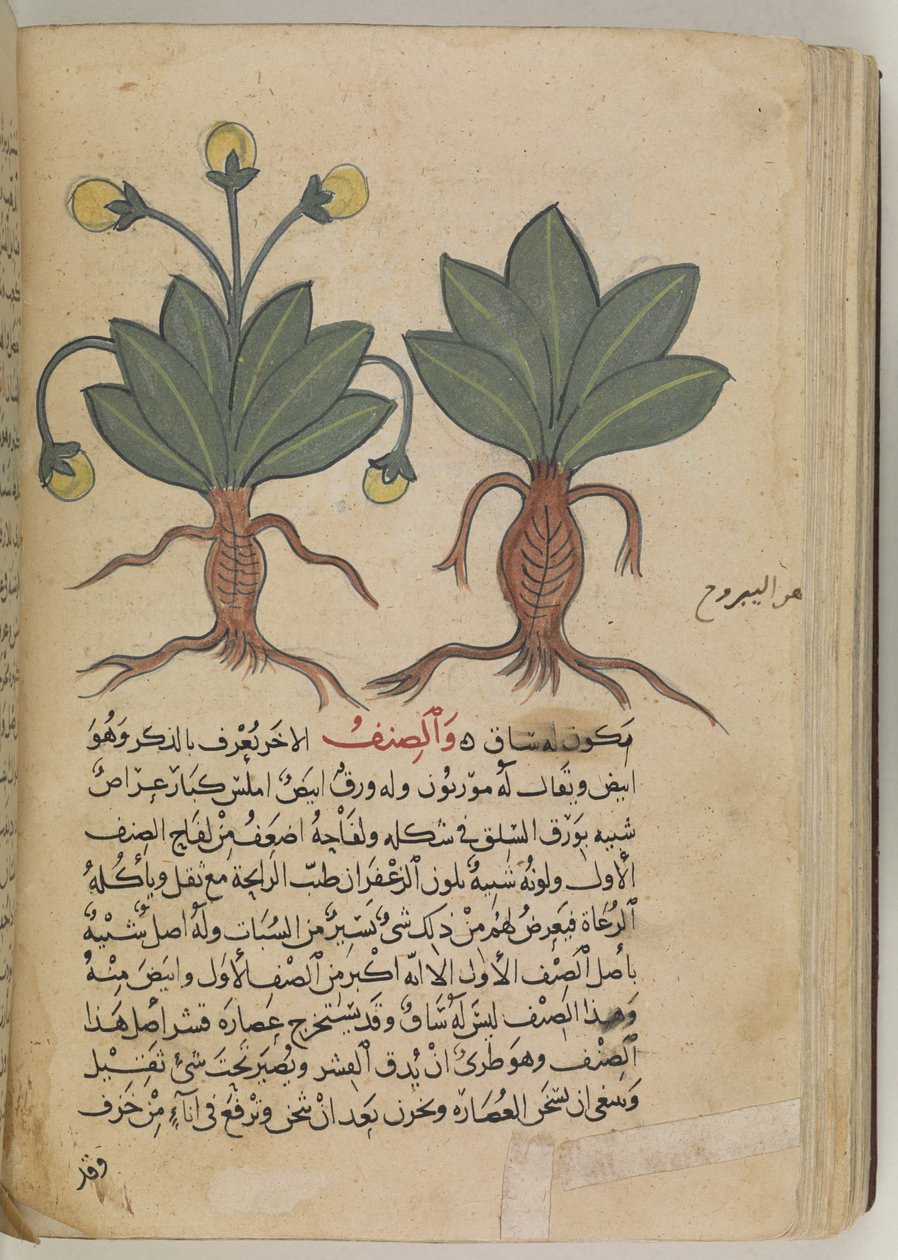 هو اليبروح
يكون له ساق ه وَالصِنفُ الاخَر يُعْرف بالذكر وَهُوَ
ابيض ويقال لَهُ موّريُون وله ورقٌ ابيَضُ املسَ كبَار عِرَاضٌ
شبيه بوَرَق السّلق في شكله ولفَاحِهُ اضعَفُ مِنْ لفاح الصِنف
الأول ولونُه شَبِيهٌ بلون الزعْفَران طيّب الرايحة مع ثقل ويأكُلهُ
الرُعَاة فيَعرِضُ لهُم مِنْ ذلك شىٌ يَسِيرٌ من السُبَات ولَهُ اصلٌ شَبْيهٌ
بأصل الصِنْف الأول الا انّه اكْبر من الصنْف الأوَل وابيَضَ مِنهُ
وَهذا الصِنْف ليسَ لَهُ سَاقٌ وقد يسْتخرج عصَارة قشر اصْل هَذا
الصِنْف وهوَ طَرىٌ انْ يُدق القِشر ويُصيَر تحتَ شىٍ ثَقِيْل
وَينبغى ان يسْخَن العُصَارة ويخزن بَعد انْ تثخن وترفَع فى اناءٍ مِنْ خزف
وقد